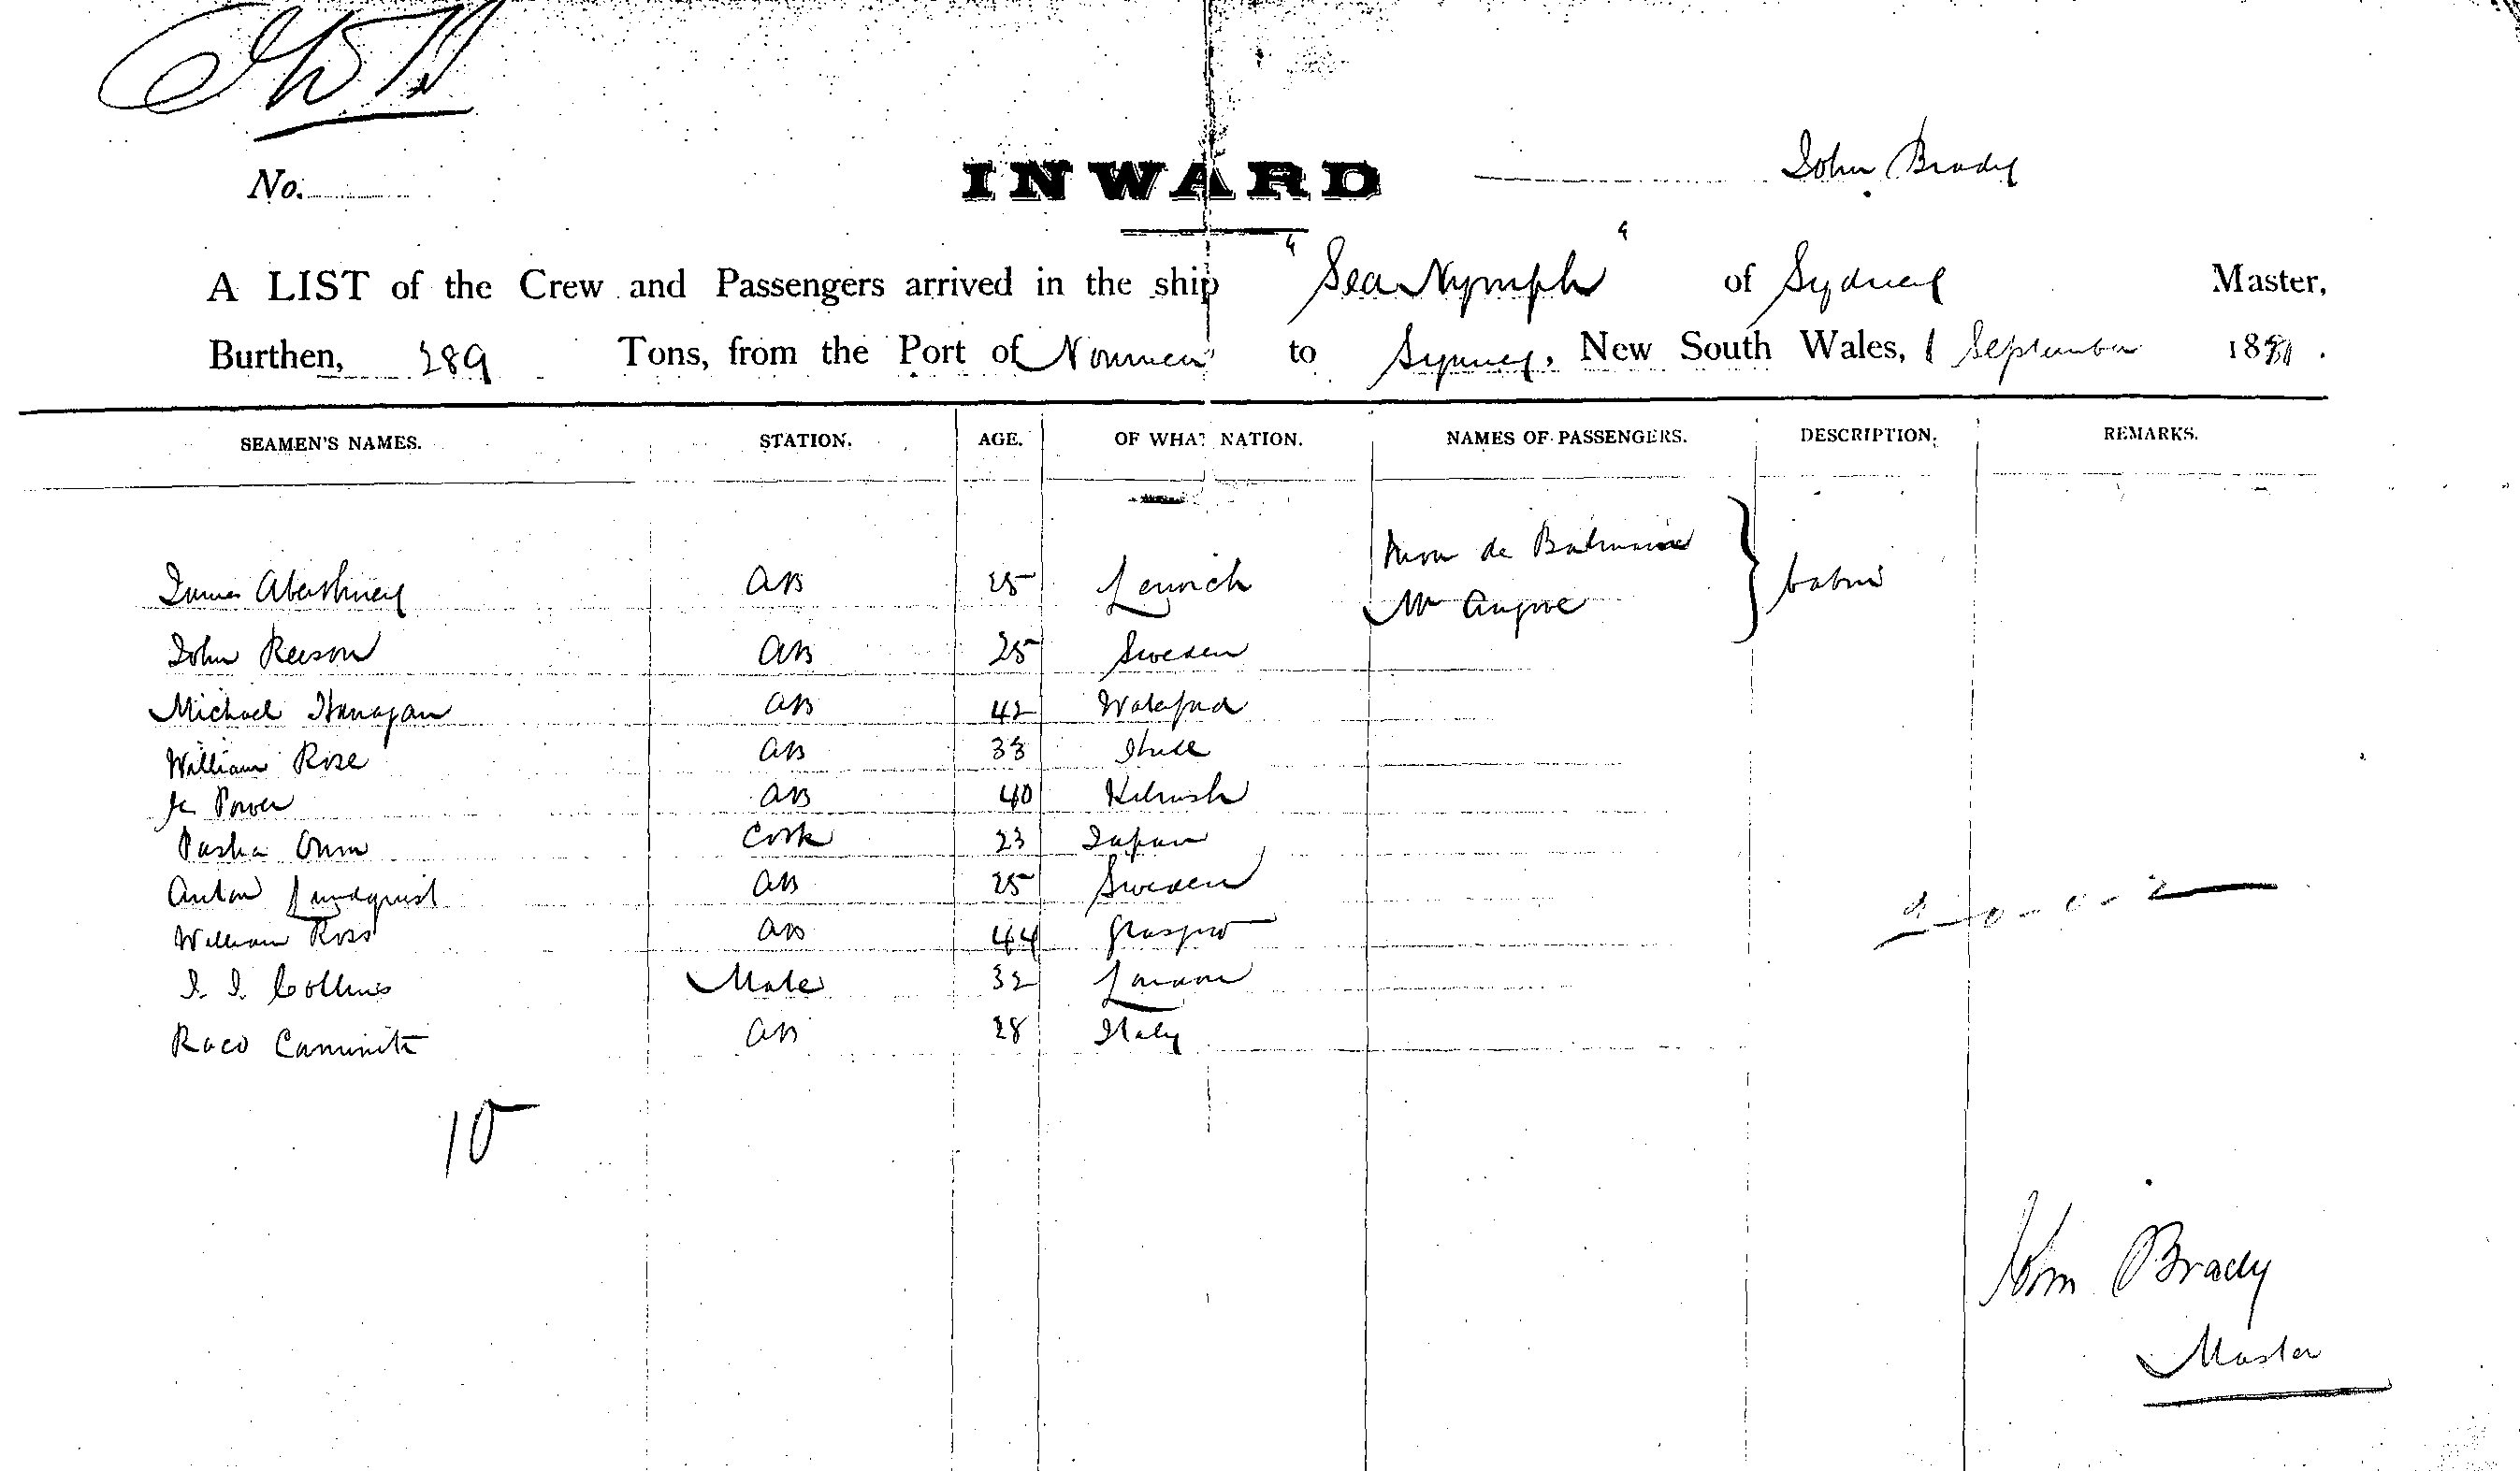 No.
INWARD
John Brady
A LIST of the Crew and Passengers arrived in the ship "Sea Nymph" of Sydney Master,
Burthen, 289 Tons, from the Port of to Sydney, New South Wales, 1 September
SEAMEN'S NAMES. STATION. AGE. OF WHAT NATION. NAMES OF PASSENGERS. DESCRIPTION. REMARKS.
de
James AB 25 Lerwick Mr
John AB 25 Sweden
Michael AB 42 Waterford
William Rose AB 33 Hull
Power AB 40 Kilrush
Cook 23 Japan
Anton Lundquist AB 25 Sweden
William Ross AB 44 Glasgow
J. J. Collins Mate 32 London
Raco AB 28 Italy
10
Brady
Master